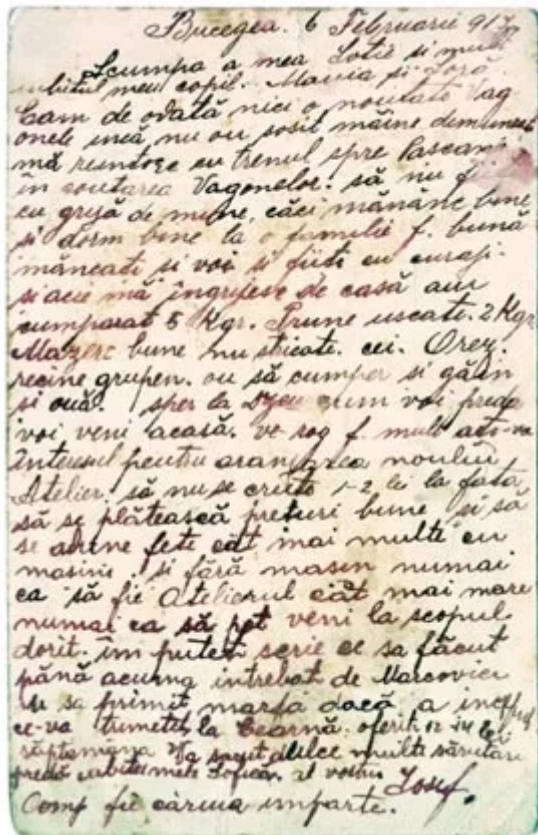 Bucegea. 6 Februarie 917
Scumpa a mea Sotie si mult
iubitul meu copil. Mania și Soră.
Cam de odată nici o noutate Vag
onele încă nu ou sosit mâine demineat
mă reintorc cu trenul spre Pascani
în coutarea Vagonelor. să nu f
cu grijă de mine, căci mănânc bine
si dorm bine la o familie f. bună
mâncati si voi si fiiti cu curaji.
si acii mă îngrijesc de casă am
cumparat 5 Kgr. Prune uscate. 2 Kgr
Mazere bune nu stricate. cei. Orez.
recine grupen. ou să cumper si găin
si ouă. sper la Dzeu cum voi preda
voi veni acasă. vo rog f. mult
Interesul pentru aranjarea noului
Atelier. să nu se crute 1-2 lei la fată
să se plătească preturi bune si să
se adune fete cât mai multe cu
masini si fără masin numai
ca să fie Atelierul cât mai mare
numai ca să pot veni la scopul
dorit. îm puteti scrie ce sa făcut
până acuma intrebat de Marcovici
sa primit marfa dacă a
ce-va tumetit la Cearnă. oferiti 12-14 lei
săptamana multe sărutari
iubitei mele al vostru Iosef.
Comp fie căruia imparte.